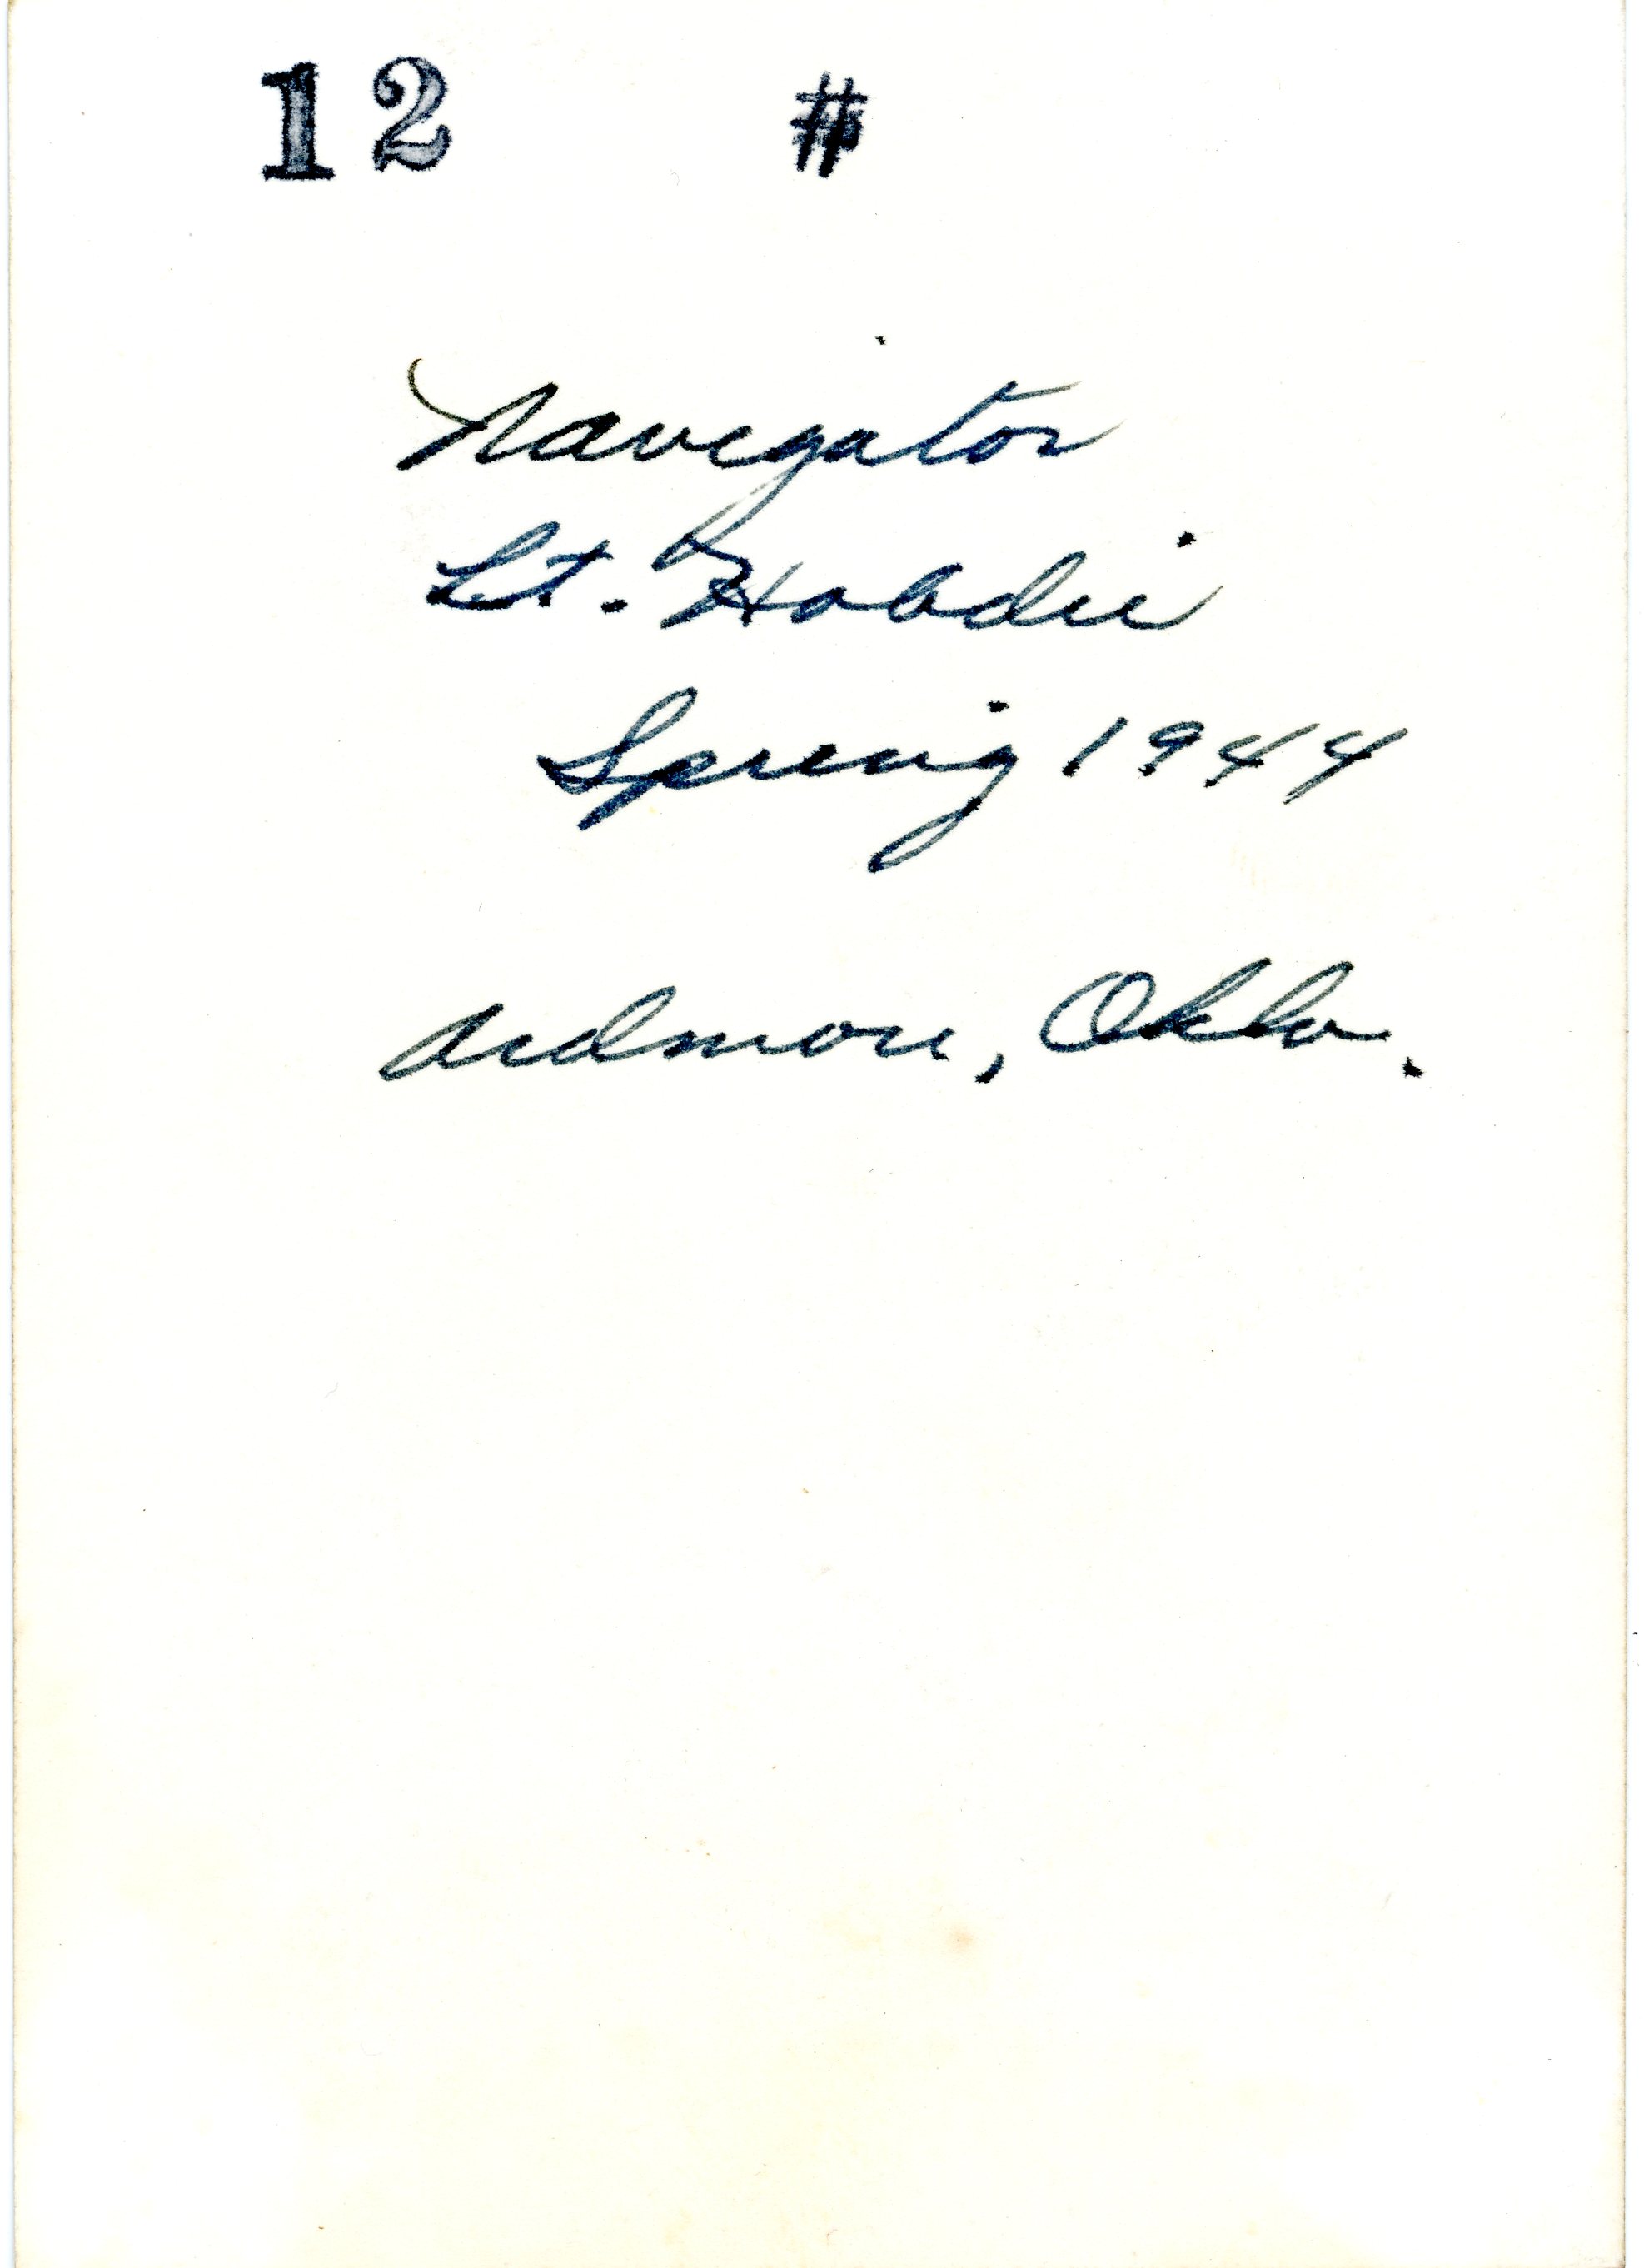 12 #
Navigator
Lt. Hobdie
Spring 1944
Ardmore, Okla.